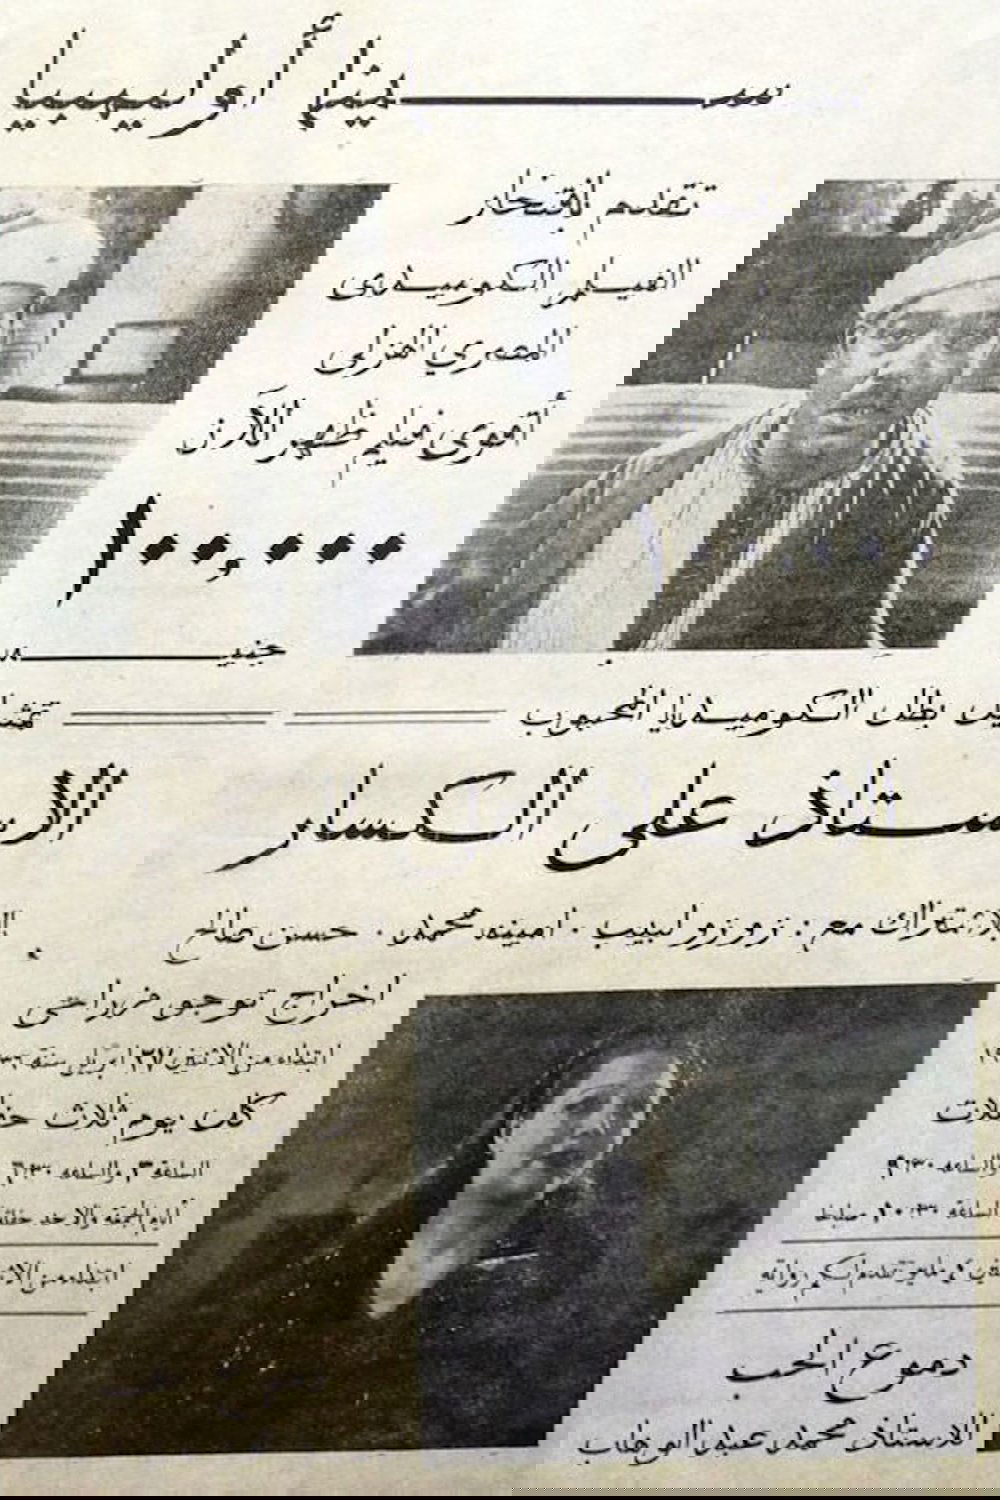 سينما أوليمبيا
تقدم بافتخار
الفيلم الكوميدى
المصري الهزلى
أقوى فيلم ظهر الآن
١٠٠,٠٠٠
جنيه
تمثيل بطل الكوميديا المحبوب
الاستاذ على الكسار
بالاشتراك مع : زوزو لبيب . امينه محمد . حسن صالح
اخراج توجو مزراحى
ابتداء من الاثنين ٢٧ ابريل سنة ١٩٣٦
كل يوم ثلاث حفلات
الساعة ٣ والساعة ٦٫٣٠ والساعة ٩٫٣٠
أيام الجمعة والاحد حفلة الساعة ١٠٫٣٠ صباحا
ابتداء من الاثنين ٤ مايو تقدم لكم رواية
دموع الحب
الاستاذ محمد عبد الوهاب